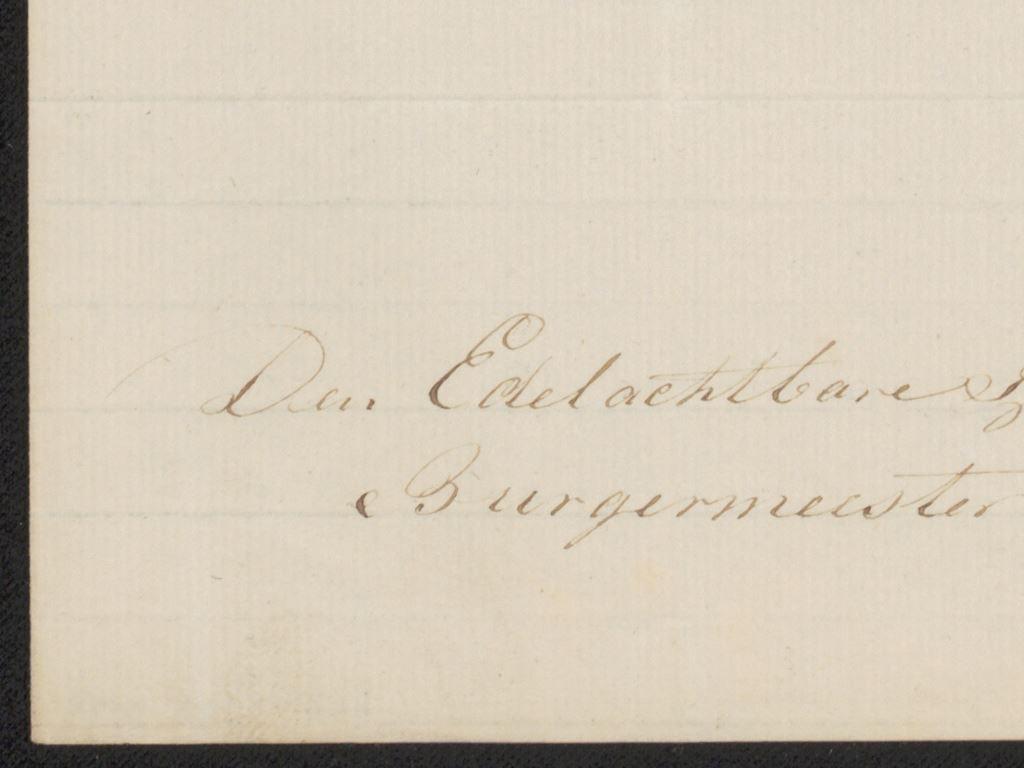 Den Edelachtbare
Burgermeester